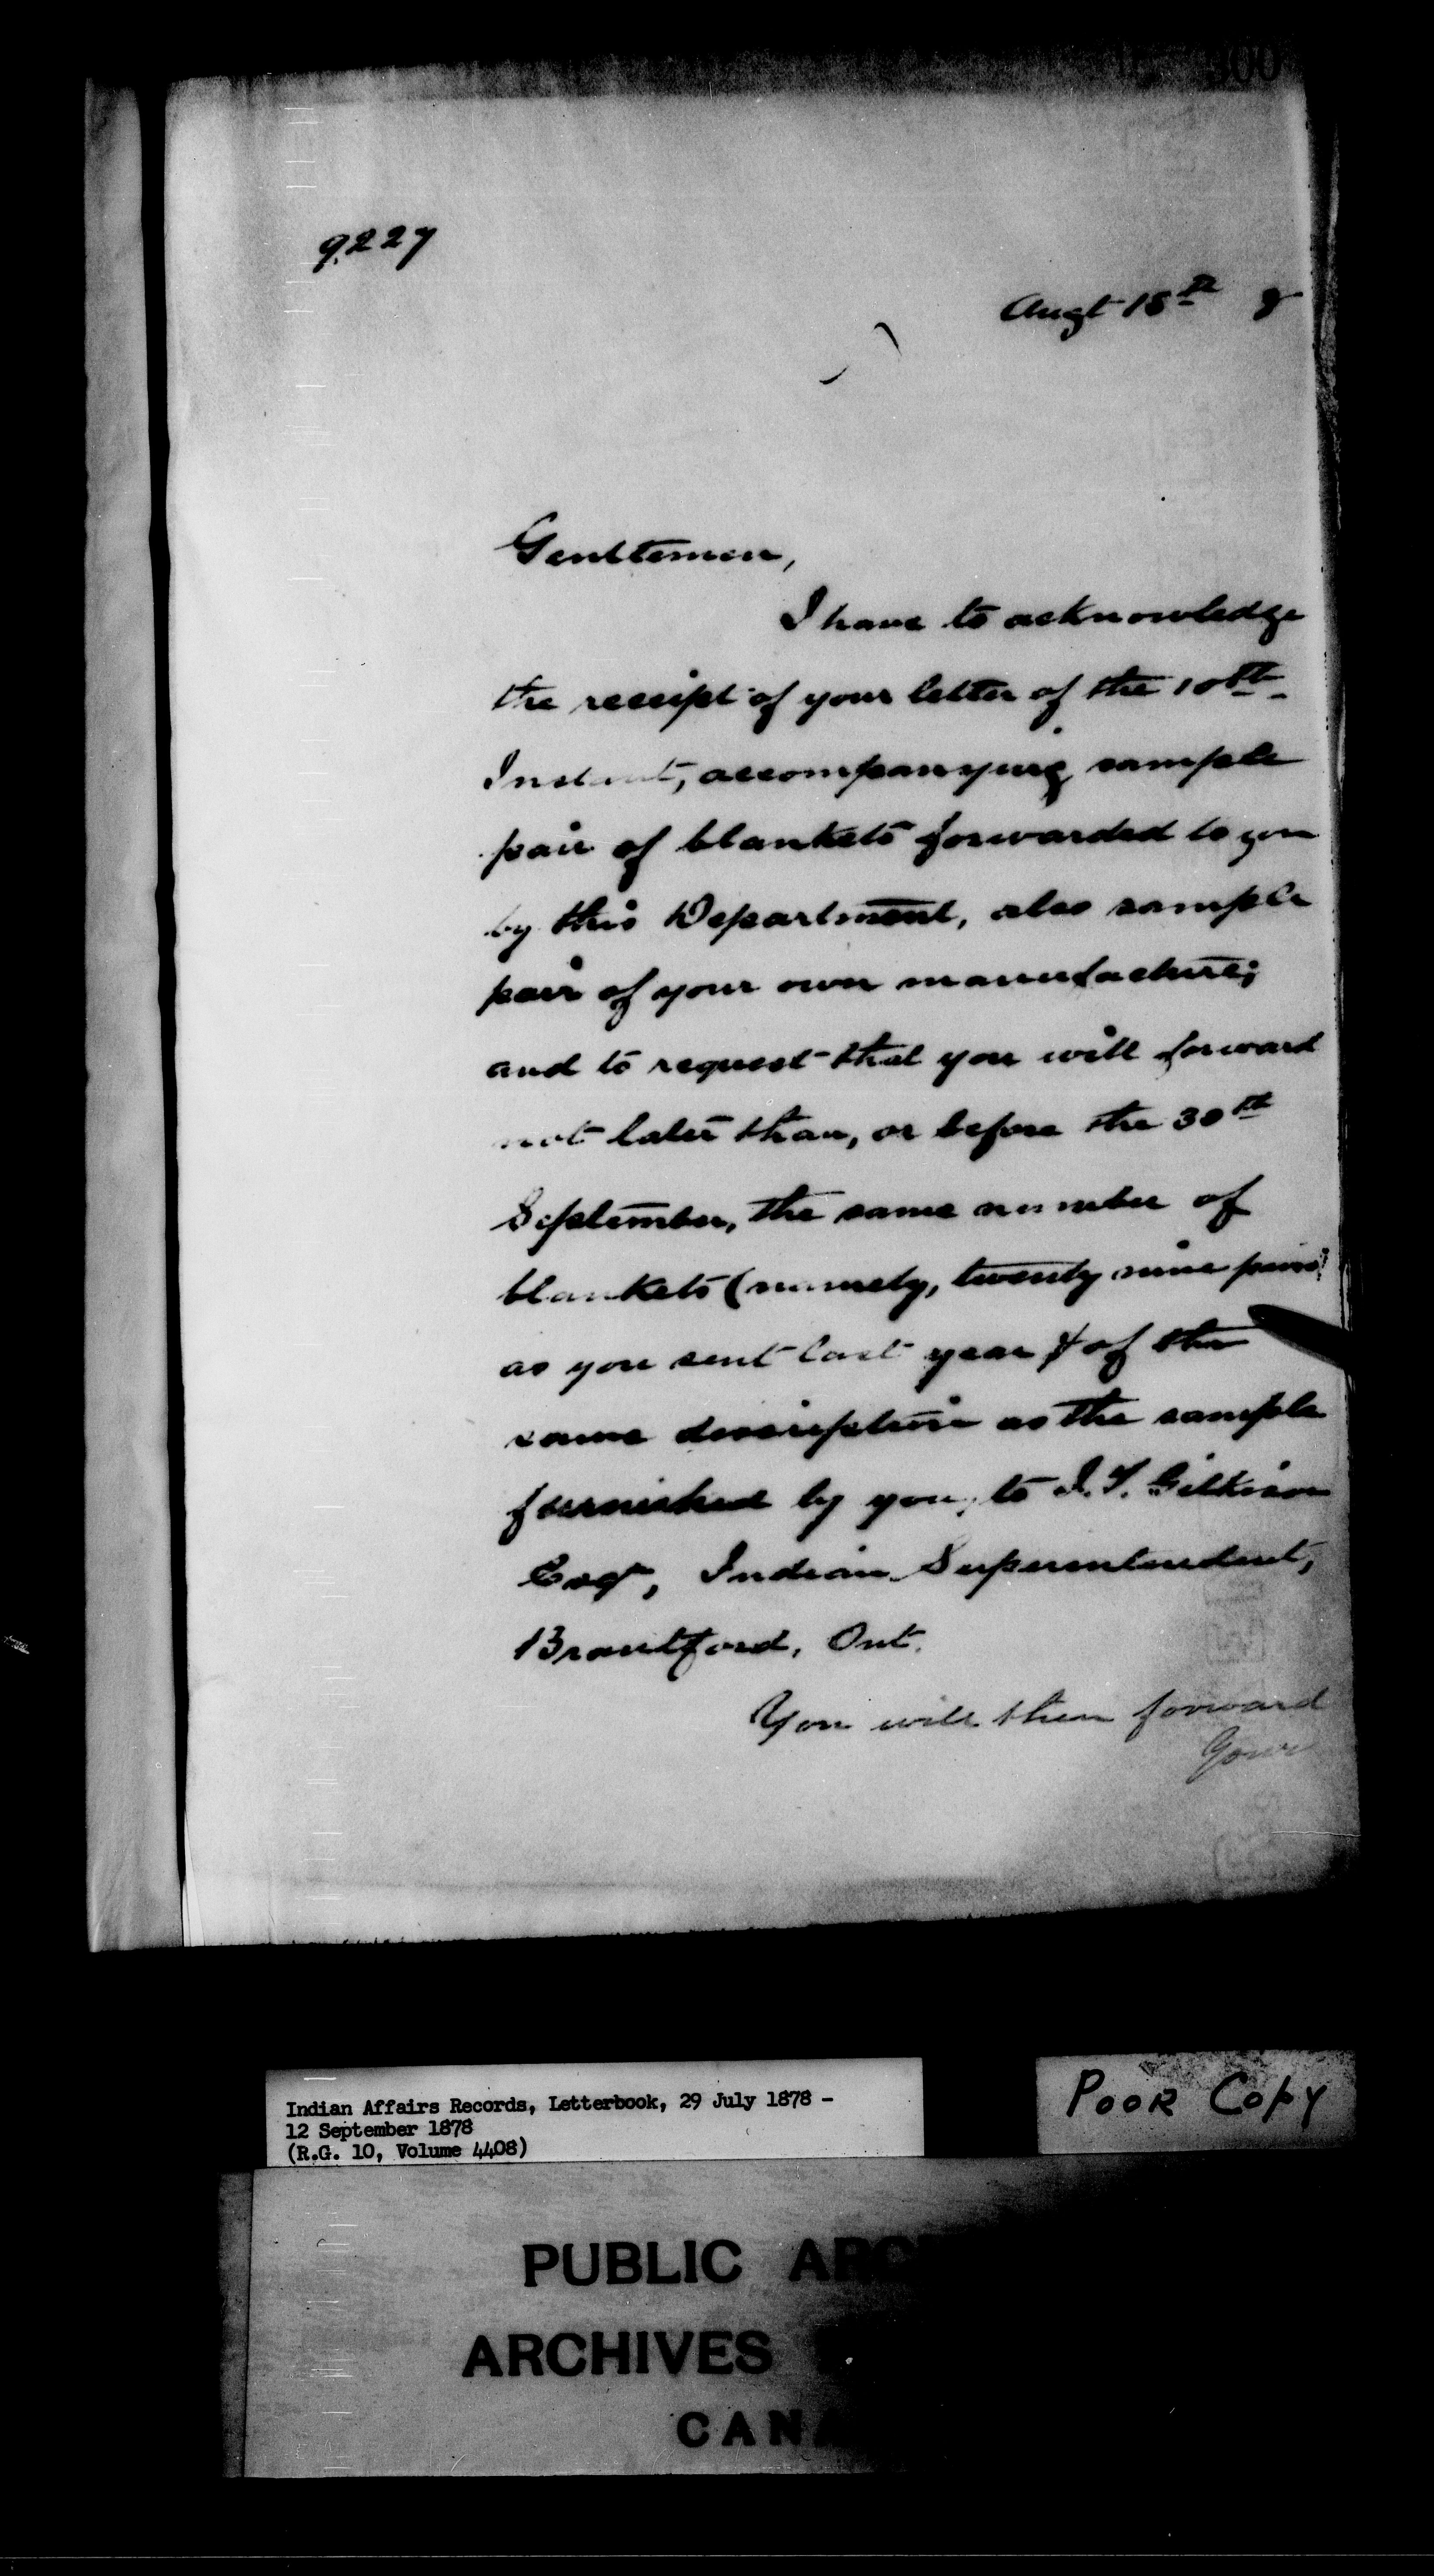 300
9227
Augt 15th 8
Gentlemen,
I have to acknowledge
the receipt of your letter of the 10th
Instant, accompanying sample
pair of blankets forwarded to you
by this Department, also sample
pair of your own manufacture;
and to request that you will forward
not later than, or before the 30th
September, the same number of
blankets (namely, twenty nine pairs)
as you sent last year & of the
same description as the sample
furnished by you, to J.T. Gilkison
Esqr, Indian Superintendent,
Brantford, Ont.
You will then forward
your
Indian Affairs Records, Letterbook, 29 July 1878 -
12 September 1878
(R.G. 10, Volume 4408)
POOR COPY
PUBLIC ARC
ARCHIVES
CANA